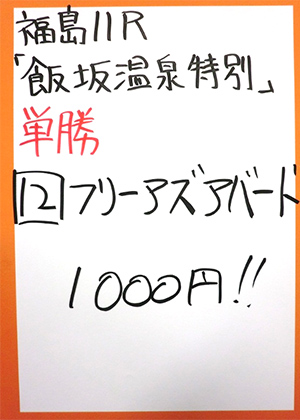 福島11R
「飯坂温泉特別」
単勝
12 フリーアズアバード
1000円!!